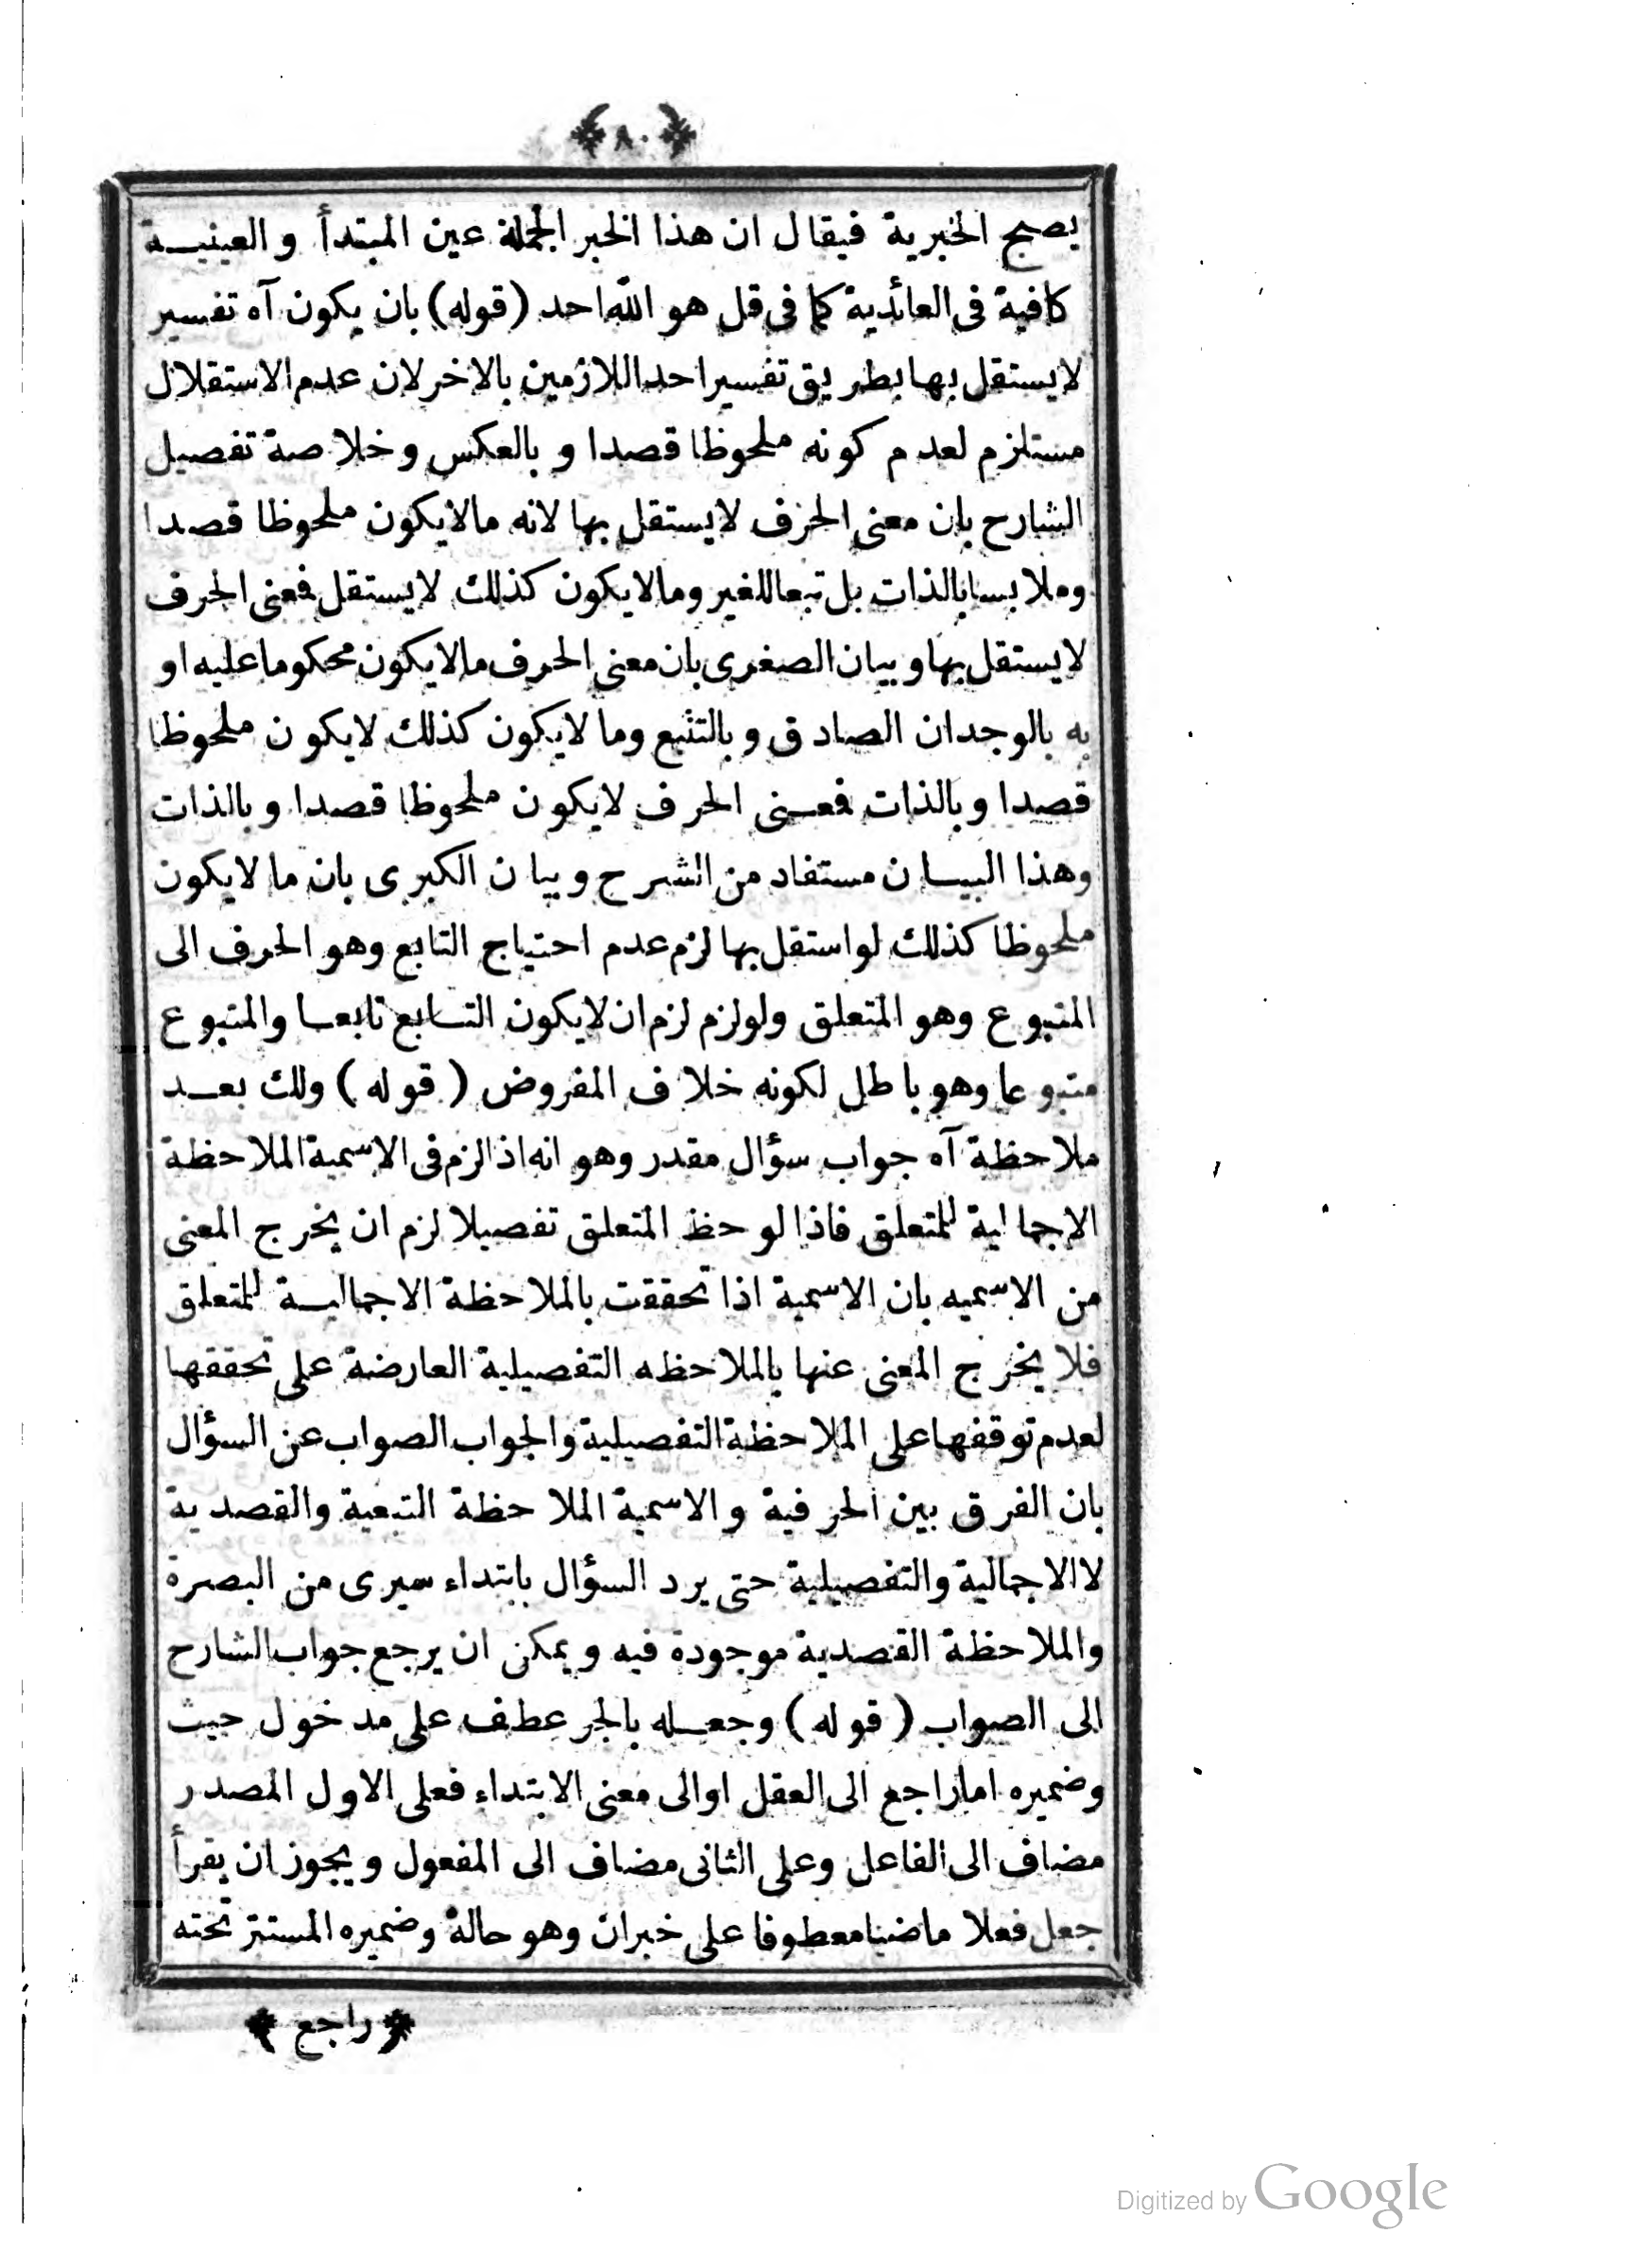 ﴿٨٠﴾
يصح الخبرية فيقال ان هذا الخبر الجملة عين المبتدأ والعينية
كافية فى العائدية كما فى قل هو الله احد (قوله) بان يكون آه تفسير
لايستقل بها بطريق تفسير احد اللازمين بالاخر لان عدم الاستقلال
مستلزم لعدم كونه ملحوظا قصدا وبالعكس وخلاصة تفصيل
الشارح بان معنى الحرف لايستقل بها لانه مالايكون ملحوظا قصدا
وملابسا بالذات بل تبعا للغير ومالايكون كذلك لايستقل فمعنى الحرف
لايستقل بها وبيان الصغرى بان معنى الحرف مالايكون محكوما عليه او
به بالوجدان الصادق وبالتتبع وما لايكون كذلك لايكون ملحوظا
قصدا وبالذات فمعنى الحرف لايكون ملحوظا قصدا وبالذات
وهذا البيان مستفاد من الشرح وبيان الكبرى بان ما لايكون
ملحوظا كذلك لو استقل بها لزم عدم احتياج التابع وهو الحرف الى
المتبوع وهو المتعلق ولولزم لزم ان لايكون التابع تابعا والمتبوع
متبوعا وهو باطل لكونه خلاف المفروض (قوله) ولك بعد
ملاحظة آه جواب سؤال مقدر وهو انه اذا لزم فى الاسمية الملاحظة
الاجمالية للمتعلق فاذا لوحظ المتعلق تفصيلا لزم ان يخرج المعنى
من الاسميه بان الاسمية اذا تحققت بالملاحظة الاجمالية للمتعلق
فلا يخرج المعنى عنها بالملاحظه التفصيلية العارضة على تحققها
لعدم توقفها على الملاحظة التفصيلية والجواب الصواب عن السؤال
بان الفرق بين الحرفية والاسمية الملاحظة التبعية والقصدية
لا الاجمالية والتفصيلية حتى يرد السؤال بابتداء سيرى من البصرة
والملاحظة القصدية موجودة فيه ويمكن ان يرجع جواب الشارح
الى الصواب (قوله) وجعله بالجر عطف على مدخول حيث
وضميره اما راجع الى العقل اوالى معنى الابتداء فعلى الاول المصدر
مضاف الى الفاعل وعلى الثانى مضاف الى المفعول ويجوز ان يقرأ
جعل فعلا ماضيا معطوفا على خبران وهو حالة وضميره المستتر تحته
﴿راجع﴾
Digitized by Google